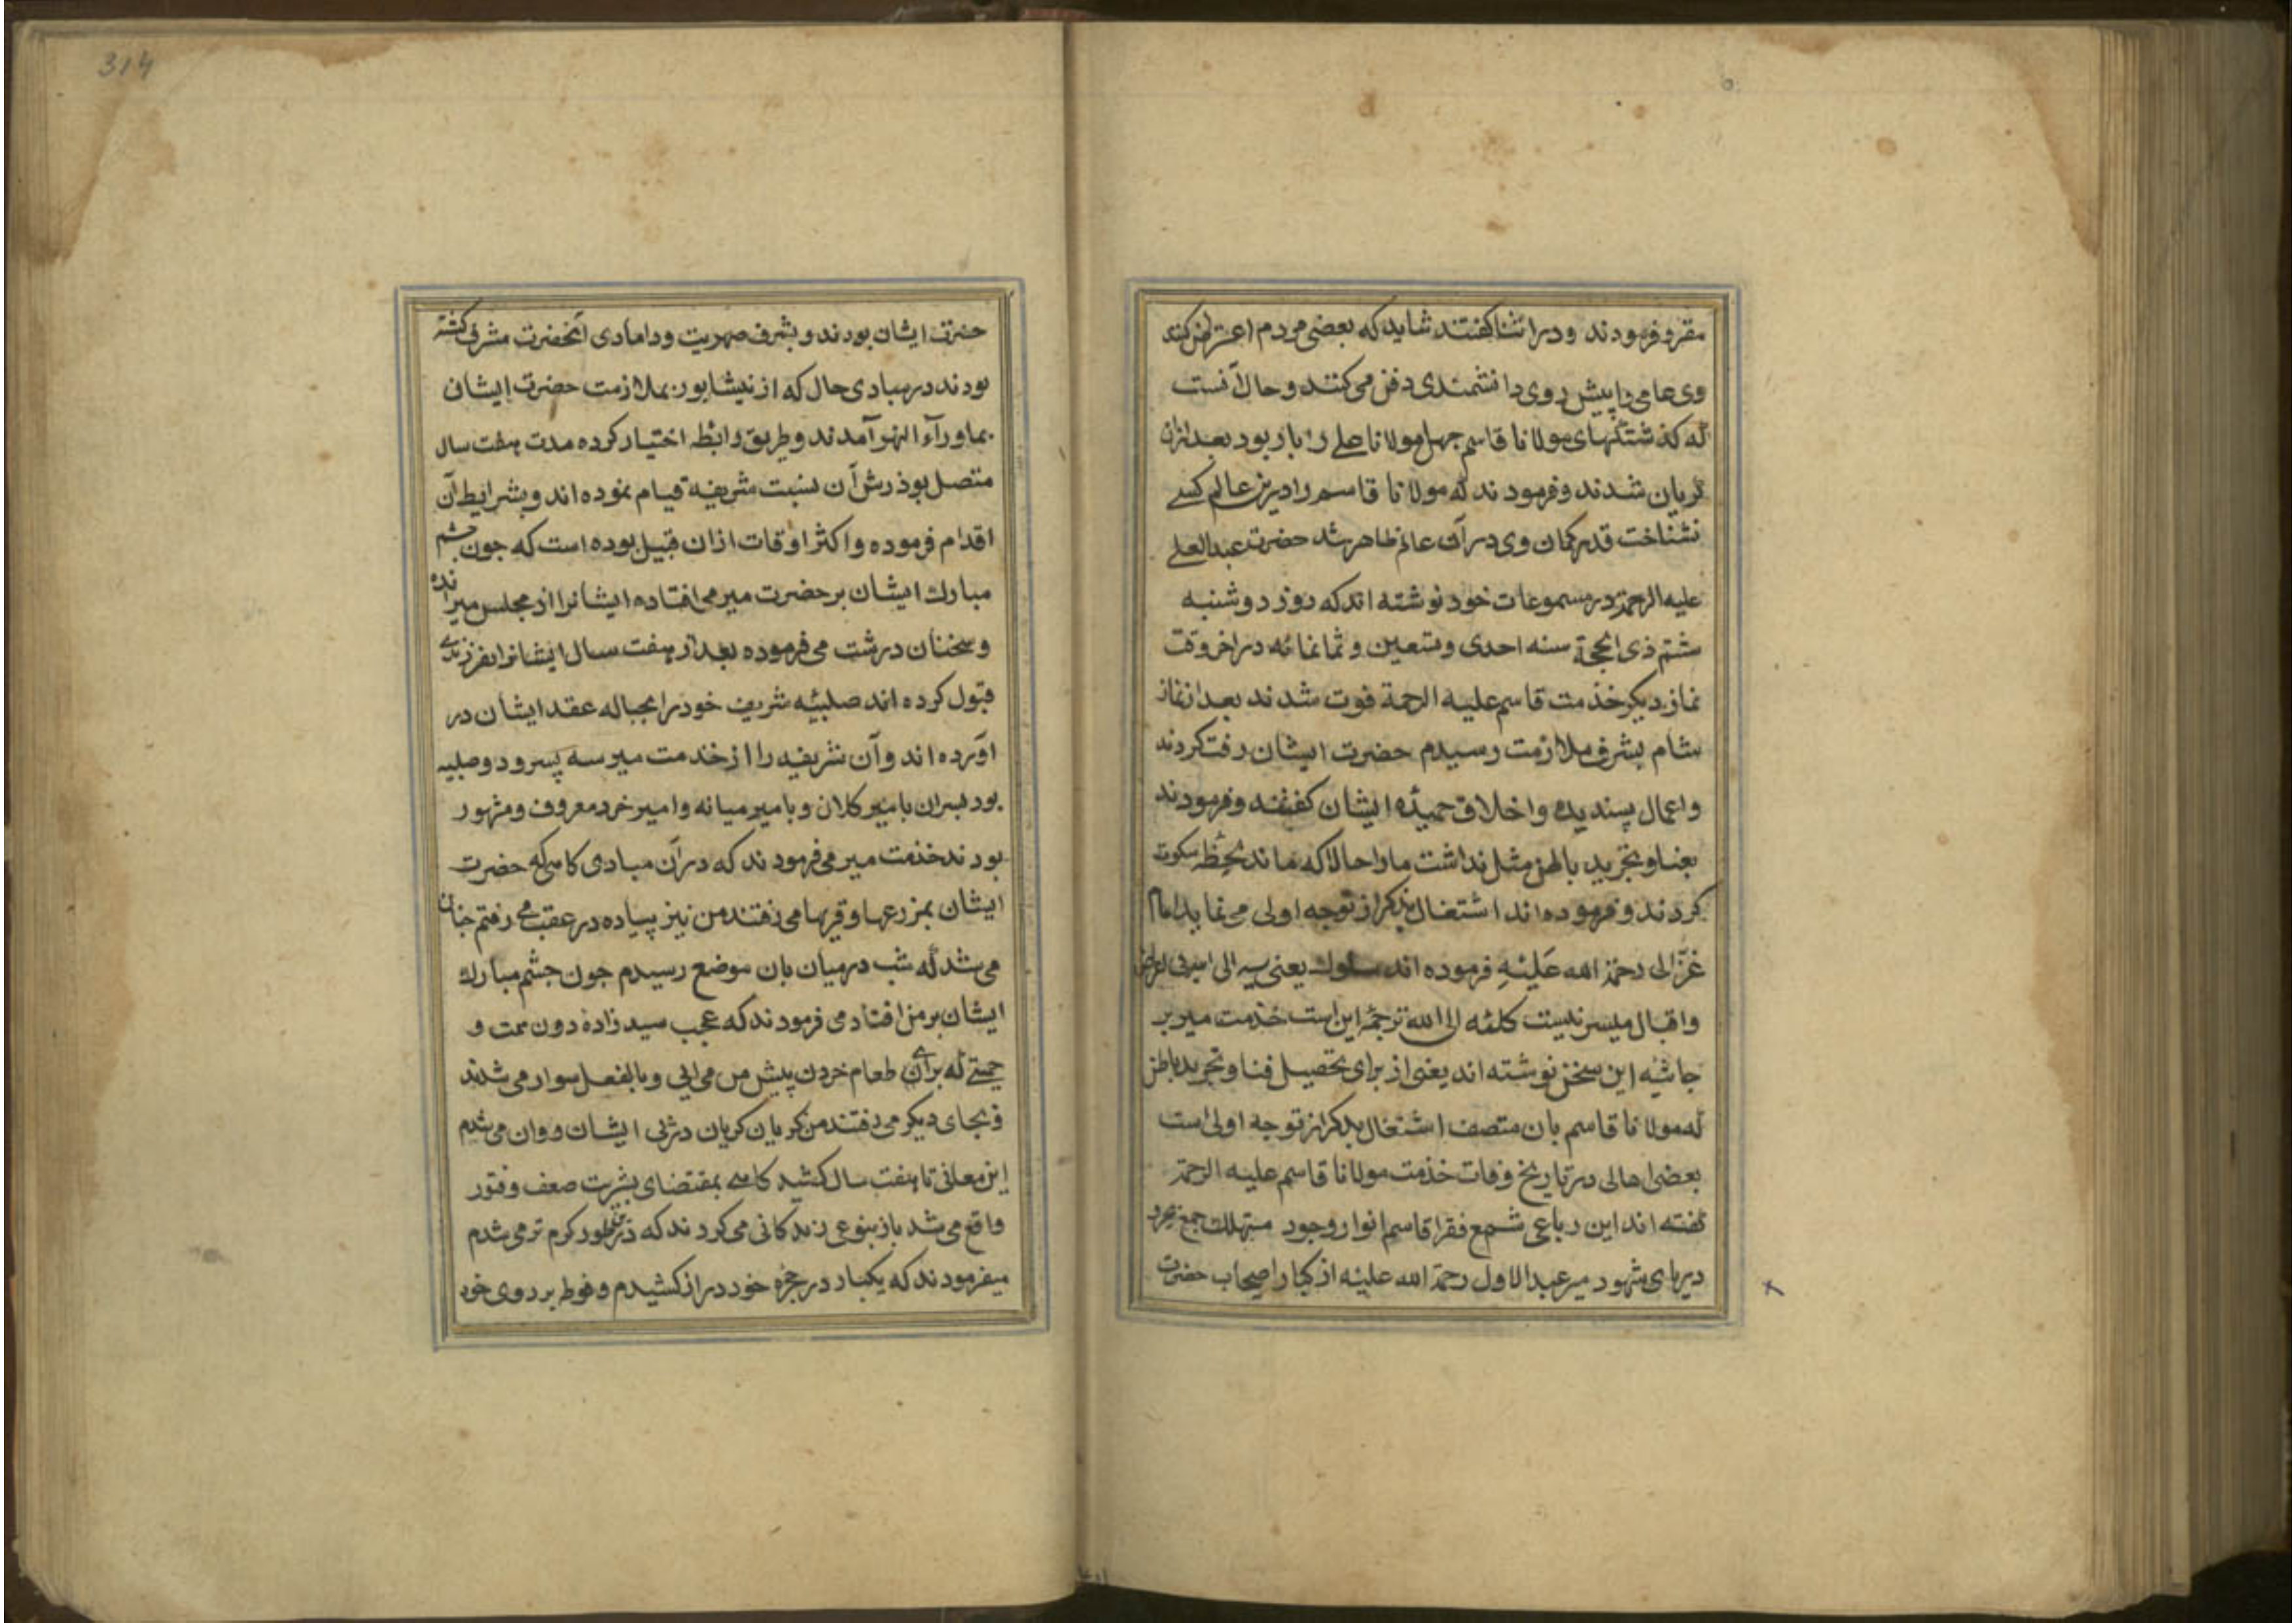 مقرر فرمودند و در اثنا کفتند شاید که بعضی مردم اعتراض کنند
وی عامی را پیش روی دانشمندی دفن می کنند و حال آنست
که کذشتکیهای مولانا قاسم جهل مولانا علی را بار بود بعد ازان
کریان شدند و فرمودند که مولانا قاسم را درین عالم کسی
نشناخت قدر کمان وی در آن عالم ظاهر شد حضرت عبدالعلی
علیه الرحمة در مسموعات خود نوشته اند که روز دوشنبه
ششم ذی الحجة سنه احدی و تسعین و ثمانمائه در اخر وقت
نماز دیکر خذمت قاسم علیه الرحمة فوت شدند بعد از نماز
شام بشرف ملازمت رسیدم حضرت ایشان رقت کردند
و اعمال پسندیده و اخلاق حمیدۀ ایشان کفتند و فرمودند
بفنا و تجرید باطن مثل نداشت ما را حالا که ماند لحظۀ سکوت
کردند و فرموده اند اشتغال بذکر از توجه اولی می نماید امام
غزالی رحمة الله علیه فرموده اند سلوک یعنی سیر الی
و اقبال میسر نیست کلمۀ الی الله ترجمۀ این است خذمت میر بر
حاشیۀ این سخن نوشته اند یعنی از برای تحصیل فنا و تجرید باطن
که مولانا قاسم بان متصف اشتغال بذکر از توجه اولی است
بعضی اهالی در تاریخ وفات خذمت مولانا قاسم علیه الرحمة
کفته اند این رباعی شمع فقرا قاسم انوار وجود مستهلک جمع
دریای شهود میر عبدالاول رحمة الله علیه از کبار اصحاب حضرت
314
حضرت ایشان بودند و بشرف صهریت و دامادی آنحضرت مشرف کشته
بودند در مبادی حال که از نیشابور بملازمت حضرت ایشان
بماوراء النهر آمدند و طریق رابطه اختیار کرده مدت هفت سال
متصل بوذرش آن نسبت شریفه قیام نموده اند و بشرایط آن
اقدام فرموده و اکثر اوقات ازان قبیل بوده است که جون جشم
مبارک ایشان بر حضرت میر می افتاده ایشانرا از مجلس میرانده
و سخنان درشت می فرموده بعد از هفت سال ایشانرا بفرزندی
قبول کرده اند صلبیۀ شریف خود را بحباله عقد ایشان در
اورده اند و آن شریفه را از خذمت میر سه پسر و دو صلبیه
بود پسران بامیر کلان و بامیر میانه و امیر خرد معروف و مشهور
بودند خذمت میر می فرمودند که در آن مبادی کاهی که حضرت
ایشان بمزرعها و قریها می رفتند من نیز پیاده در عقب می رفتم جنان
می شد که شب در میان بان موضع رسیدم جون جشم مبارک
ایشان بر من افتاد می فرمودند که عجب سید زادۀ دون همت و
که برای آن طعام خردن پیش من می ایی و بالفعل سوار می شدند
و بجای دیکر می رفتند من کریان کریان در پی ایشان روان می شدم
این معانی تا هفت سال کشید کاهی بمقتضای بشریت ضعف و فتور
واقع می شد باز بنوعی زندکانی می کردند که در ظهور کرم تر می شدم
میفرمودند که یکبار در حجرۀ خود دراز کشیدم و فوطه بر روی خود